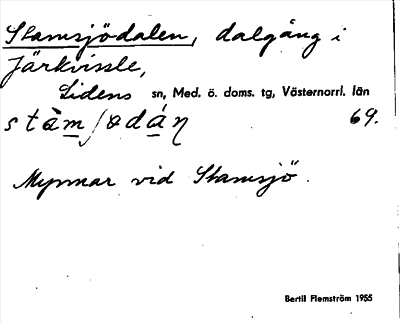 Stamsjödalen, dalgång i
Järkvissle,
Lidens sn, Med. ö. doms. tg, Västernorrl. län
69.
Myrmar vid Stamsjö.
Bertil Flemström 1955